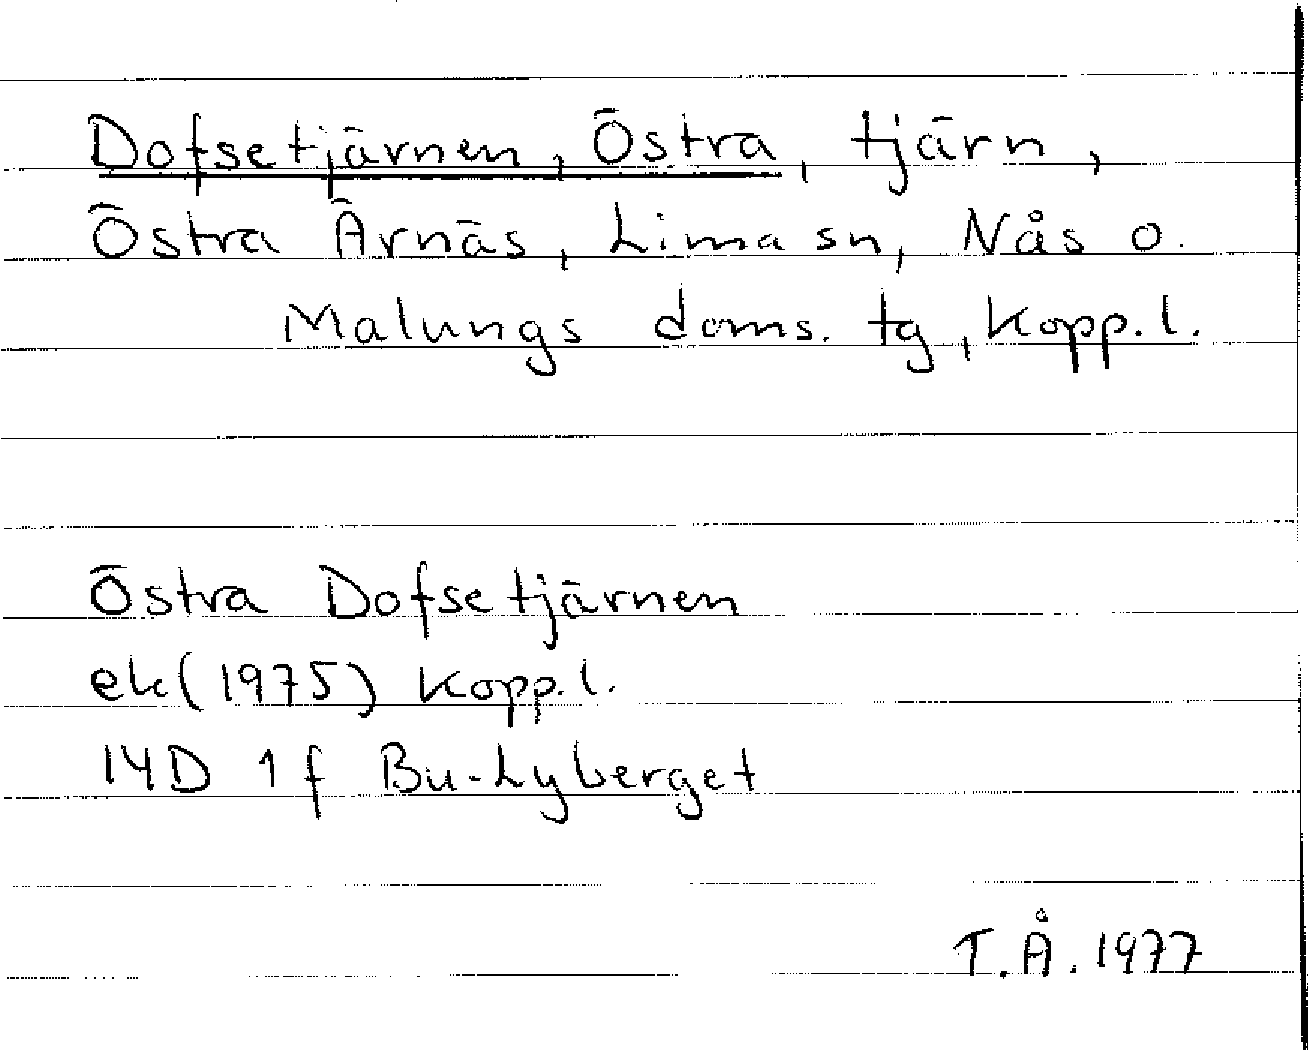 Dofsetjärnen, Östra, tjärn,
Östra Ärnäs, Lima sn, Nås o.
Malungs doms. tg, Kopp.l.
Östra Dofsetjärnen
ek(1975) Kopp.l.
14D 1f Bu-Lyberget
T.Å. 1977